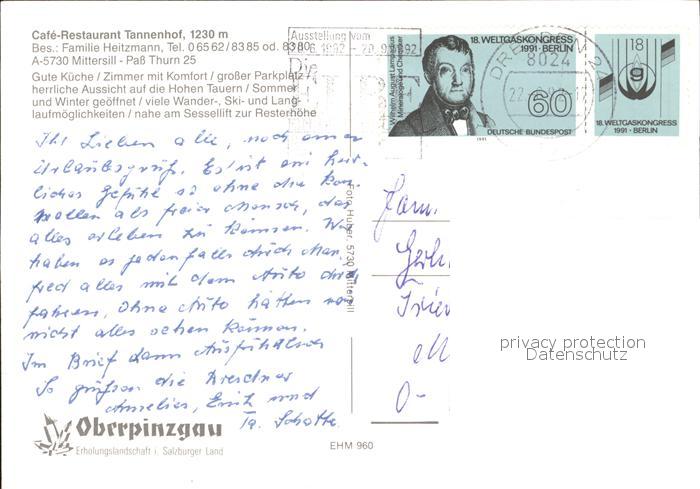 Café-Restaurant Tannenhof, 1230 m
Bes.: Familie Heitzmann, Tel. 0 65 62 / 83 85 od. 83 80
A-5730 Mittersill - Paß Thurn 25
Gute Küche / Zimmer mit Komfort / großer Parkplatz /
herrliche Aussicht auf die Hohen Tauern / Sommer
und Winter geöffnet / viele Wander-, Ski- und Lang-
laufmöglichkeiten / nahe am Sessellift zur Resterhöhe
Ihr Lieben alle, noch einen
Urlaubsgruß. Es ist ein herr-
liches Gefühl so ohne die Kon-
trollen als freier Mensch, das
alles erleben zu können. Wir
haben es jedenfalls durch Man-
fred alles mit dem Auto
fahren, ohne Auto hätten wir
nicht alles sehen können.
Im Brief dann Ausführlicher
So grüßen die Dresdner
Annelies, Erich und
Fa. Schotte.
Oberpinzgau
Erholungslandschaft i. Salzburger Land
EHM 960
Foto Huber, 5730 Mittersill
Ausstellung vom
1992 - 20.9.1992
Die
DRESDEN
8024
22
Wilhelm August Lampadius
Mineraloge und Chemiker
18. WELTGASKONGRESS
1991 · BERLIN
60
DEUTSCHE BUNDESPOST
1991
18
18. WELTGASKONGRESS
1991 · BERLIN
Fam.
O-
privacy protection
Datenschutz